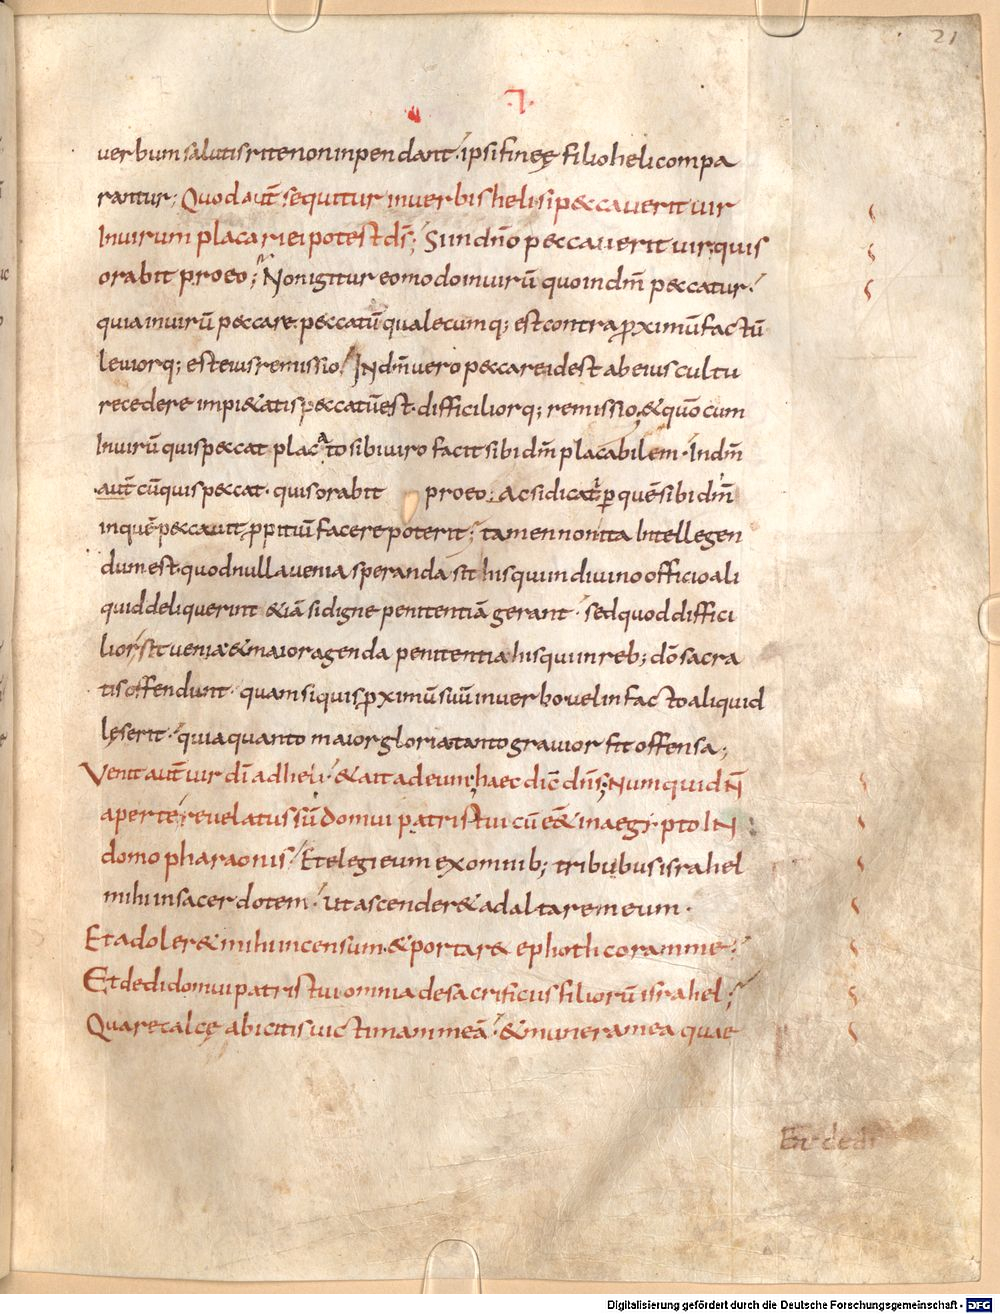 21
uerbum salutis rite non inpendant · ipsi fineę filio heli compa
rantur; Quod aut̄ sequitur in uerbis heli si peccauerit uir
In uirum placari ei potest ds̄; Si in dn̄o peccauerit uir, quis
orabit pro eo; Non igitur eo modo in uirū quo in dm̄ peccatur·
quia in uirū peccare peccatū qualecumq; est contra ꝓximū factū
leuiorq; est eius remissio / IN dn̄m uero peccare id est ab eius cultu
recedere impi&atis peccatū est· difficiliorq; remissio, & quō cum
In uirū quis peccat placato sibi uiro facit sibi dm̄ placabilem· In dm̄
aut̄ cū quis peccat· quis orabit pro eo; Ac si dicat̄ per quē sibi dm̄
in quē peccauit ꝓpitiū facere poterit; tamen non ita Intellegen
dum est quod nulla uenia speranda sit his qui in diuino officio ali
quid deliquerint &iā si digne penitentiā gerant· sed quod diffici
lior sit uenia & maior agenda penitentia his qui in reb; dō sacra
tis offendunt· quam si quis ꝓximū suū in uerbo uel in facto aliquid
lęserit· quia quanto maior gloria tanto grauior fit offensa;
Venit aut̄ uir dī ad heli· & ait ad eum; haec dic̄ dn̄s; Numquid N̄
aperte reuelatus sū domui patris tui cū ēē& in aegipto IN
domo pharaonis / Et elegi eum ex omnib; tribubus israhel
mihi in sacerdotem· ut ascender& ad altare meum·
Et adoler& mihi incensum· & portar& ephoth coram me·
Et dedi domui patris tui omnia de sacrificiis filiorū israhel;
Quare calcę abicitis uictimam meā· & munera mea quae
Et dedi
Digitalisierung gefördert durch die Deutsche Forschungsgemeinschaft - DFG